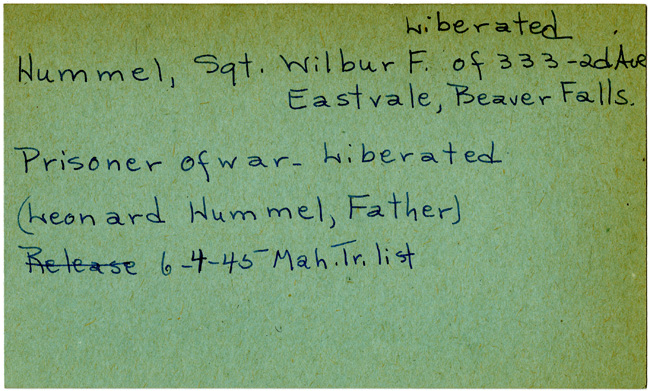 Liberated
Hummel, Sgt. Wilbur F. of 333-2d Ave
Eastvale, Beaver Falls.
Prisoner of war- Liberated
(Leonard Hummel, Father)
Release 6-4-45 Mah. Tr. list